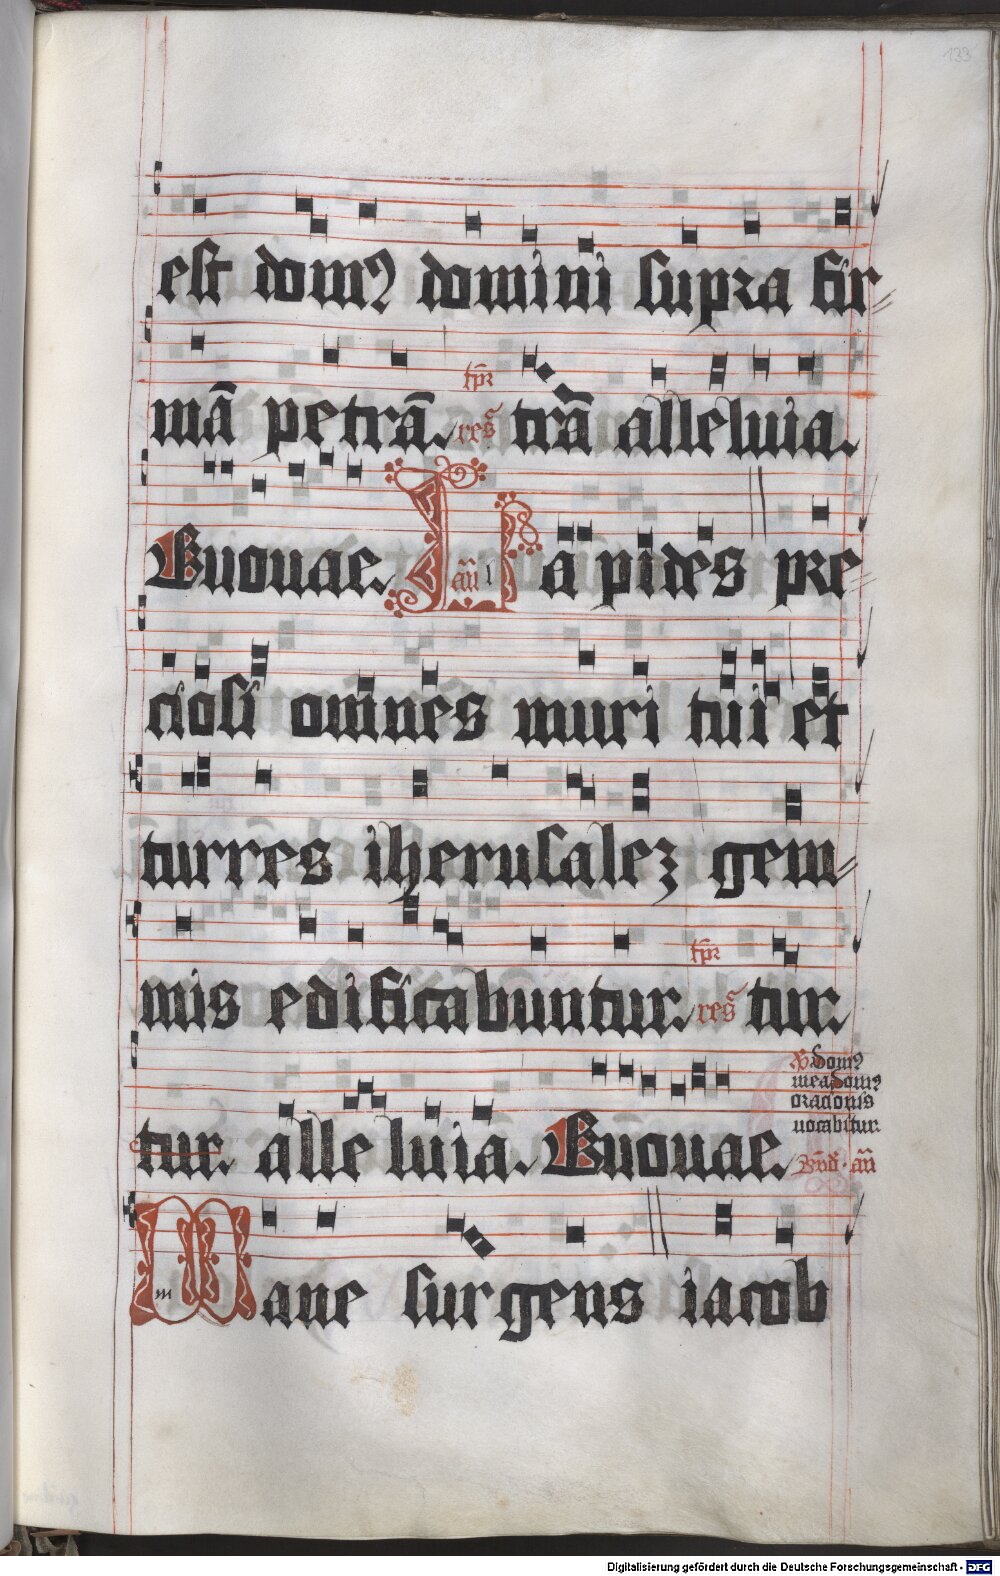 133
est domꝰ domini supra fir⸗
mā petrā. tꝑr resͣ trā alleluia.
Euouae. añ Lapides pre⸗
ciosi omnes muri tui et
turres iherusalez gem⸗
mis edificabuntur. tꝑr resͣ tur.
tur. alleluia. Euouae.
℣. domꝰ
mea domꝰ
oracionis
uocabitur
Bñd. añ
Mane surgens iacob
Digitalisierung gefördert durch die Deutsche Forschungsgemeinschaft - DFG